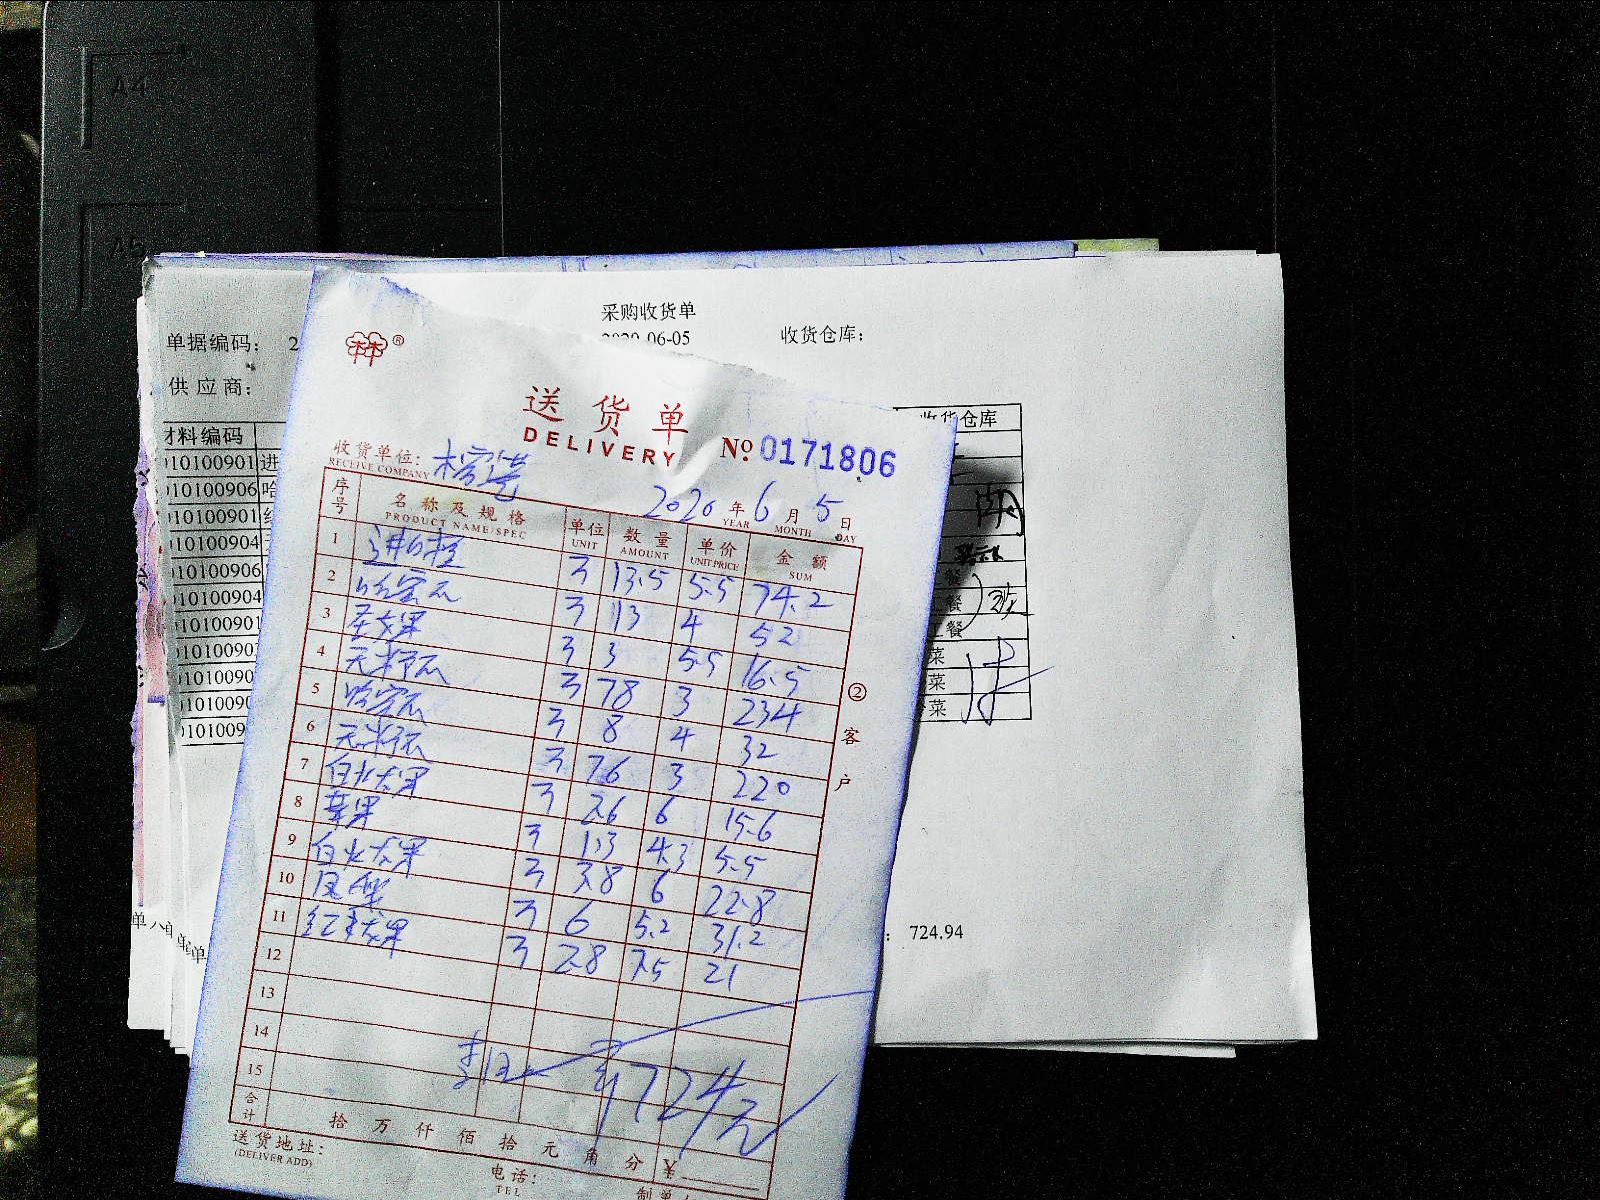 A4
A5
采购收货单
单据编码: 2
06-05
收货仓库:
供应商:
材料编码
收货仓库
10100901 进
10100906 哈
10100901 红
10100904
10100906
10100904
10100901
1010090
1010090
1010090
餐
餐
工餐
菜
菜
菜
: 724.94
林林®
送货单
DELIVERY
№ 0171806
收货单位:
RECEIVE COMPANY
2020 年 6 月 5 日
YEAR MONTH DAY
序号 名称及规格 单位 数量 单价 金额
PRODUCT NAME/SPEC UNIT AMOUNT UNIT PRICE SUM
1 进口橙 13.5 5.5 74.2
2 哈蜜瓜 13 4 52
3 圣女果 3 5.5 16.5
4 无籽瓜 78 3 234
5 哈密瓜 8 4 32
6 无籽瓜 76 3 220
7 白火龙果 2.6 6 15.6
8 苹果 1.3 4.3 5.5
9 白火龙果 3.8 6 22.8
10 凤梨 6 5.2 31.2
11 红火龙果 2.8 7.5 21
12
13
14
15
724元
合计 拾万仟佰拾元角分 ¥
②客户
送货地址:
(DELIVER ADD)
电话:
TEL
制单